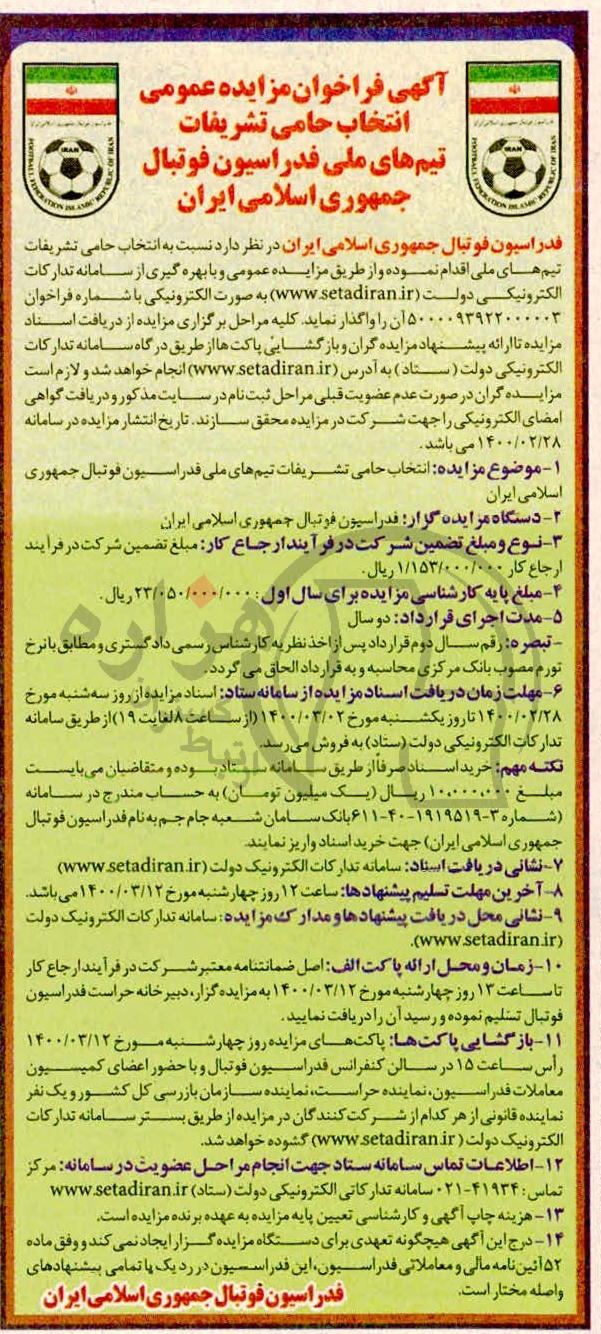 آگهی فراخوان مزایده عمومی
انتخاب حامی تشریفات
تیم‌های ملی فدراسیون فوتبال
جمهوری اسلامی ایران
IRAN
FOOTBALL FEDERATION ISLAMIC REPUBLIC OF IRAN
IRAN
FOOTBALL FEDERATION ISLAMIC REPUBLIC OF IRAN
فدراسیون فوتبال جمهوری اسلامی ایران در نظر دارد نسبت به انتخاب حامی تشریفات
تیم‌های ملی اقدام نموده و از طریق مزایده عمومی و با بهره گیری از سامانه تدارکات
الکترونیکی دولت (www.setadiran.ir) به صورت الکترونیکی با شماره فراخوان
۵۰۰۰۰۹۳۹۲۲۰۰۰۰۰۳ آن را واگذار نماید. کلیه مراحل برگزاری مزایده از دریافت اسناد
مزایده تا ارائه پیشنهاد مزایده گران و بازگشایی پاکت‌ها از طریق درگاه سامانه تدارکات
الکترونیکی دولت ( ستاد ) به آدرس (www.setadiran.ir) انجام خواهد شد و لازم است
مزایده گران در صورت عدم عضویت قبلی مراحل ثبت نام در سایت مذکور و دریافت گواهی
امضای الکترونیکی را جهت شرکت در مزایده محقق سازند. تاریخ انتشار مزایده در سامانه
۱۴۰۰/۰۲/۲۸ می باشد.
۱- موضوع مزایده: انتخاب حامی تشریفات تیم‌های ملی فدراسیون فوتبال جمهوری
اسلامی ایران
۲- دستگاه مزایده گزار: فدراسیون فوتبال جمهوری اسلامی ایران
۳- نوع و مبلغ تضمین شرکت در فرآیند ارجاع کار: مبلغ تضمین شرکت در فرآیند
ارجاع کار ۱/۱۵۳/۰۰۰/۰۰۰ ریال.
۴- مبلغ پایه کارشناسی مزایده برای سال اول: ۲۳/۰۵۰/۰۰۰/۰۰۰ ریال.
۵- مدت اجرای قرارداد: دو سال
- تبصره: رقم سال دوم قرارداد پس از اخذ نظریه کارشناس رسمی دادگستری و مطابق با نرخ
تورم مصوب بانک مرکزی محاسبه و به قرارداد الحاق می گردد.
۶- مهلت زمان دریافت اسناد مزایده از سامانه ستاد: اسناد مزایده از روز سه‌شنبه مورخ
۱۴۰۰/۰۲/۲۸ تا روز یکشنبه مورخ ۱۴۰۰/۰۳/۰۲ (از ساعت ۸ لغایت ۱۹) از طریق سامانه
تدارکات الکترونیکی دولت (ستاد) به فروش می رسد.
نکته مهم: خرید اسناد صرفا از طریق سامانه ستاد بوده و متقاضیان می بایست
مبلغ ۱۰,۰۰۰,۰۰۰ ریال (یک میلیون تومان) به حساب مندرج در سامانه
(شماره ۳-۱۹۱۹۵۱۹-۴۰-۶۱۱ بانک سامان شعبه جام جم به نام فدراسیون فوتبال
جمهوری اسلامی ایران) جهت خرید اسناد واریز نمایند.
۷- نشانی دریافت اسناد: سامانه تدارکات الکترونیک دولت (www.setadiran.ir)
۸- آخرین مهلت تسلیم پیشنهادها: ساعت ۱۲ روز چهارشنبه مورخ ۱۴۰۰/۰۳/۱۲ می باشد.
۹- نشانی محل دریافت پیشنهادها و مدارک مزایده: سامانه تدارکات الکترونیک دولت
(www.setadiran.ir).
۱۰- زمان و محل ارائه پاکت الف: اصل ضمانتنامه معتبر شرکت در فرآیند ارجاع کار
تا ساعت ۱۳ روز چهارشنبه مورخ ۱۴۰۰/۰۳/۱۲ به مزایده گزار، دبیرخانه حراست فدراسیون
فوتبال تسلیم نموده و رسید آن را دریافت نمایید.
۱۱- بازگشایی پاکت‌ها: پاکت‌های مزایده روز چهارشنبه مورخ ۱۴۰۰/۰۳/۱۲
رأس ساعت ۱۵ در سالن کنفرانس فدراسیون فوتبال و با حضور اعضای کمیسیون
معاملات فدراسیون، نماینده حراست، نماینده سازمان بازرسی کل کشور و یک نفر
نماینده قانونی از هر کدام از شرکت کنندگان در مزایده از طریق بستر سامانه تدارکات
الکترونیک دولت ( www.setadiran.ir) گشوده خواهد شد.
۱۲- اطلاعات تماس سامانه ستاد جهت انجام مراحل عضویت در سامانه: مرکز
تماس: ۴۱۹۳۴-۰۲۱ سامانه تدارکاتی الکترونیکی دولت (ستاد) www.setadiran.ir
۱۳- هزینه چاپ آگهی و کارشناسی تعیین پایه مزایده به عهده برنده مزایده است.
۱۴- درج این آگهی هیچگونه تعهدی برای دستگاه مزایده گزار ایجاد نمی کند و وفق ماده
۵۲ آئین نامه مالی و معاملاتی فدراسیون، این فدراسیون در رد یک یا تمامی پیشنهادهای
واصله مختار است.
فدراسیون فوتبال جمهوری اسلامی ایران
هزاره